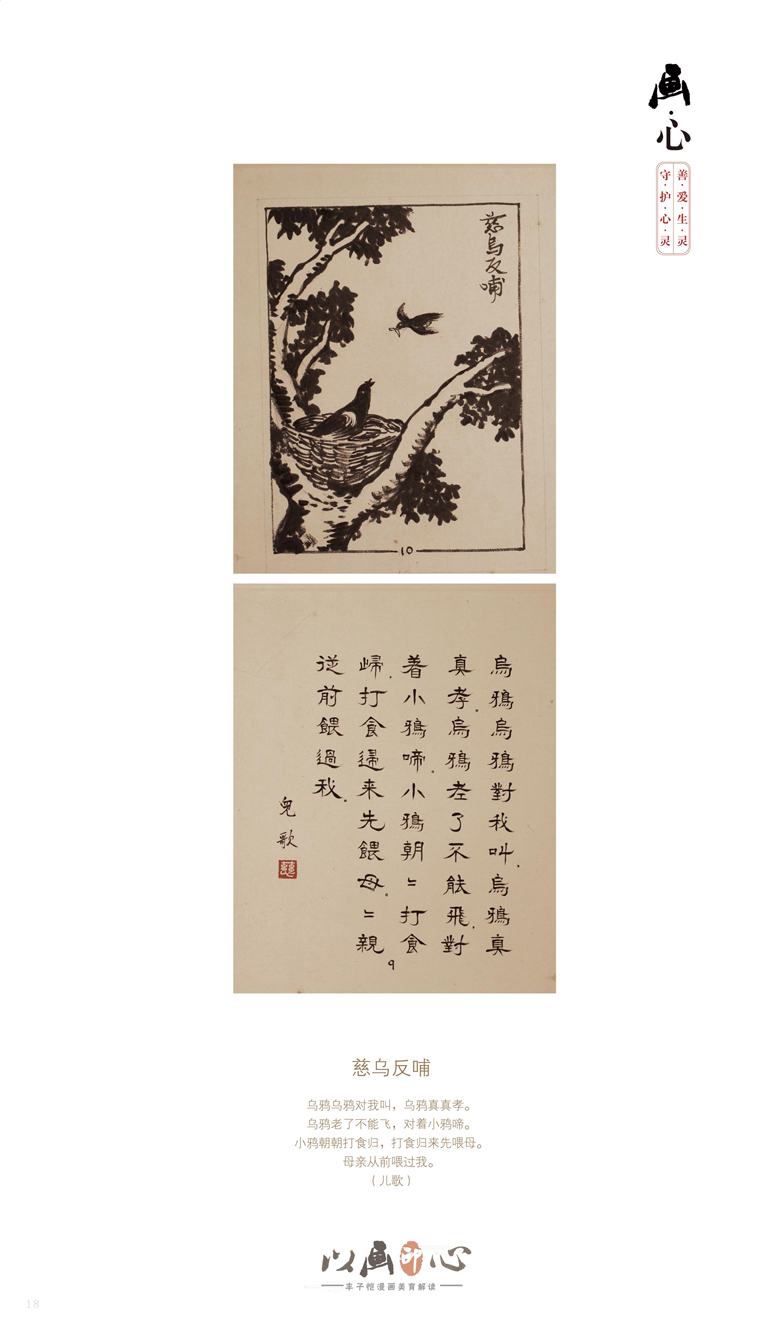 画·心
善·爱·生·灵
守·护·心·灵
慈烏反哺
10
烏鴉烏鴉對我叫.烏鴉真
真孝.烏鴉老了不能飛.對
着小鴉啼.小鴉朝〻打食
歸.打食歸来先餵母.〻親
從前餵過我.
兒歌
9
慈乌反哺
乌鸦乌鸦对我叫，乌鸦真真孝。
乌鸦老了不能飞，对着小鸦啼。
小鸦朝朝打食归，打食归来先喂母。
母亲从前喂过我。
（儿歌）
以画印心
丰子恺漫画美育解读
18